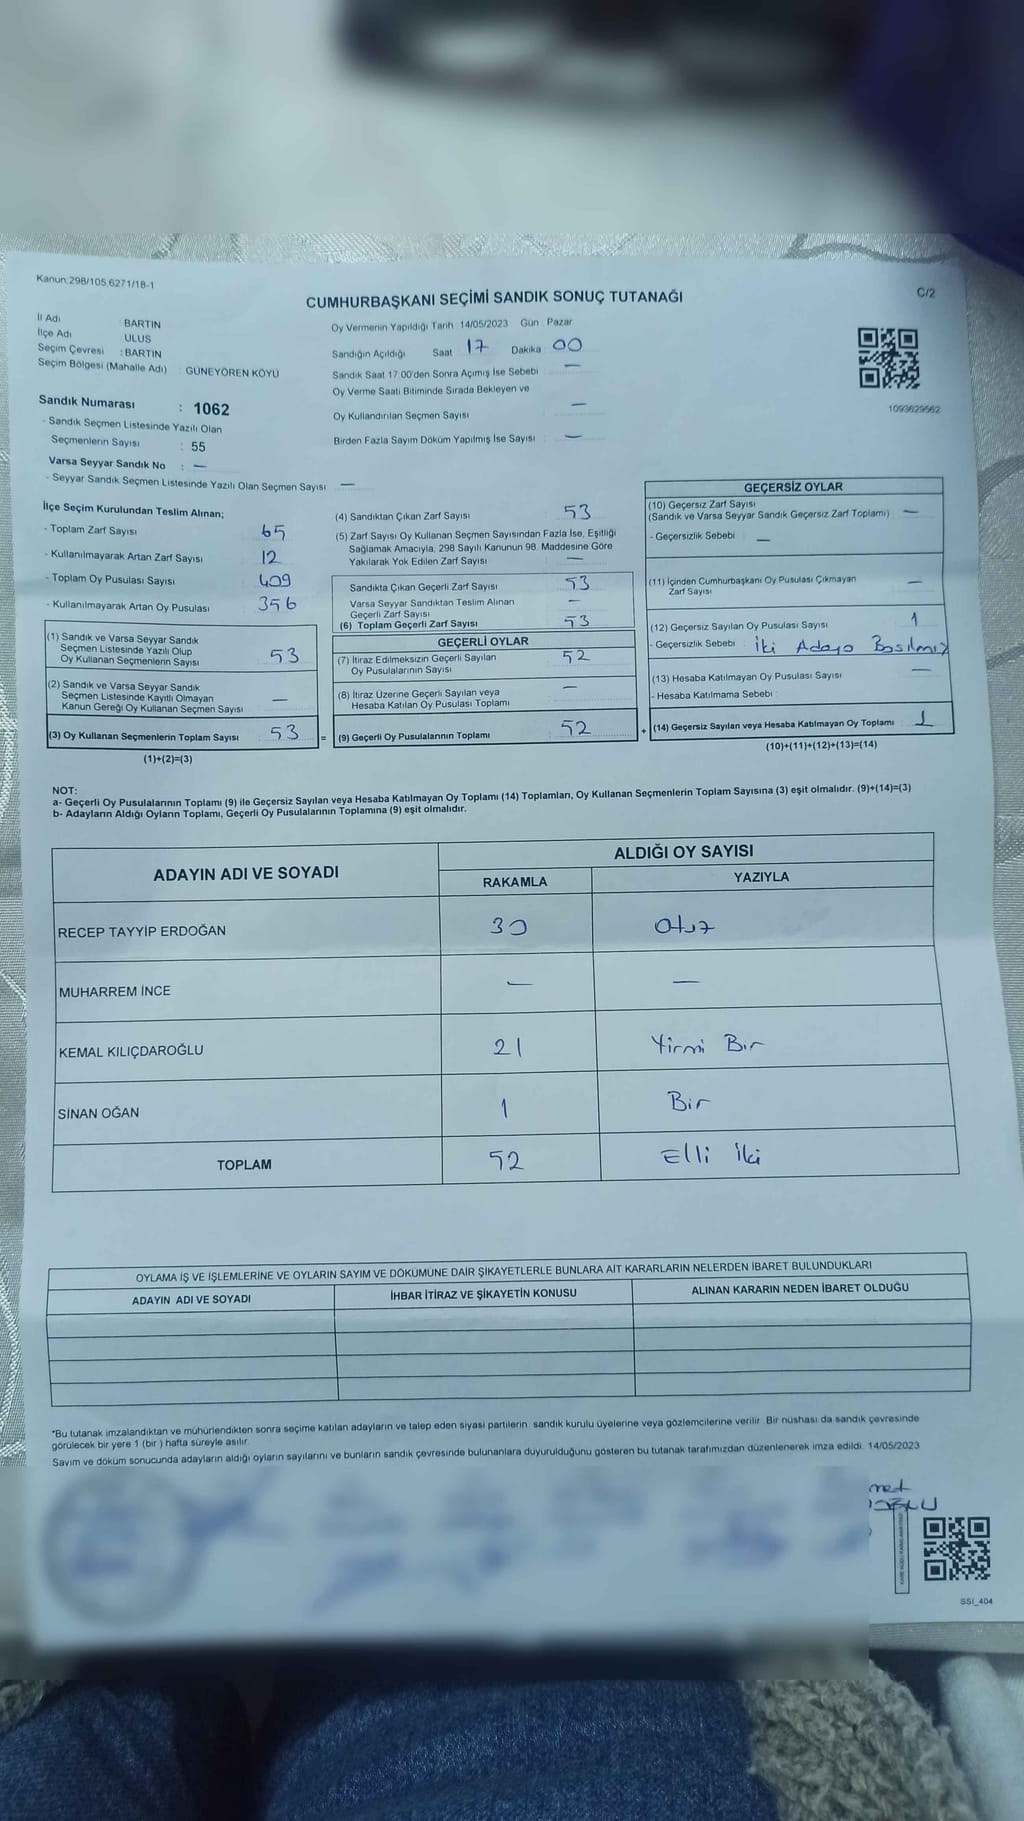 Kanun:298/105;6271/18-1
C/2
CUMHURBAŞKANI SEÇİMİ SANDIK SONUÇ TUTANAĞI
İl Adı : BARTIN
İlçe Adı : ULUS
Seçim Çevresi : BARTIN
Seçim Bölgesi (Mahalle Adı) : GÜNEYÖREN KÖYÜ
Oy Vermenin Yapıldığı Tarih : 14/05/2023 Gün : Pazar
Sandığın Açıldığı Saat 17 Dakika 00
Sandık Saat 17:00'den Sonra Açımış İse Sebebi : —
Oy Verme Saati Bitiminde Sırada Bekleyen ve
Oy Kullandırılan Seçmen Sayısı : —
Birden Fazla Sayım Döküm Yapılmış İse Sayısı : —
1093629562
Sandık Numarası : 1062
- Sandık Seçmen Listesinde Yazılı Olan
Seçmenlerin Sayısı : 55
Varsa Seyyar Sandık No : —
- Seyyar Sandık Seçmen Listesinde Yazılı Olan Seçmen Sayısı : —
İlçe Seçim Kurulundan Teslim Alınan;
- Toplam Zarf Sayısı : 65
- Kullanılmayarak Artan Zarf Sayısı : 12
- Toplam Oy Pusulası Sayısı : 409
- Kullanılmayarak Artan Oy Pusulası : 356
(1) Sandık ve Varsa Seyyar Sandık
Seçmen Listesinde Yazılı Olup
Oy Kullanan Seçmenlerin Sayısı : 53
(2) Sandık ve Varsa Seyyar Sandık
Seçmen Listesinde Kayıtlı Olmayan
Kanun Gereği Oy Kullanan Seçmen Sayısı : —
(3) Oy Kullanan Seçmenlerin Toplam Sayısı : 53 =
(1)+(2)=(3)
(4) Sandıktan Çıkan Zarf Sayısı : 53
(5) Zarf Sayısı Oy Kullanan Seçmen Sayısından Fazla İse, Eşitliği
Sağlamak Amacıyla, 298 Sayılı Kanunun 98. Maddesine Göre
Yakılarak Yok Edilen Zarf Sayısı : —
Sandıkta Çıkan Geçerli Zarf Sayısı : 53
Varsa Seyyar Sandıktan Teslim Alınan
Geçerli Zarf Sayısı : —
(6) Toplam Geçerli Zarf Sayısı : 53
GEÇERLİ OYLAR
(7) İtiraz Edilmeksizin Geçerli Sayılan
Oy Pusulalarının Sayısı : 52
(8) İtiraz Üzerine Geçerli Sayılan veya
Hesaba Katılan Oy Pusulası Toplamı : —
(9) Geçerli Oy Pusulalarının Toplamı : 52 +
GEÇERSİZ OYLAR
(10) Geçersiz Zarf Sayısı
(Sandık ve Varsa Seyyar Sandık Geçersiz Zarf Toplamı) : —
- Geçersizlik Sebebi : —
(11) İçinden Cumhurbaşkanı Oy Pusulası Çıkmayan
Zarf Sayısı : —
(12) Geçersiz Sayılan Oy Pusulası Sayısı : 1
- Geçersizlik Sebebi : İki Adaya Basılmış
(13) Hesaba Katılmayan Oy Pusulası Sayısı : —
- Hesaba Katılmama Sebebi :
(14) Geçersiz Sayılan veya Hesaba Katılmayan Oy Toplamı : 1
(10)+(11)+(12)+(13)=(14)
NOT:
a- Geçerli Oy Pusulalarının Toplamı (9) ile Geçersiz Sayılan veya Hesaba Katılmayan Oy Toplamı (14) Toplamları, Oy Kullanan Seçmenlerin Toplam Sayısına (3) eşit olmalıdır. (9)+(14)=(3)
b- Adayların Aldığı Oyların Toplamı, Geçerli Oy Pusulalarının Toplamına (9) eşit olmalıdır.
ADAYIN ADI VE SOYADI
ALDIĞI OY SAYISI
RAKAMLA YAZIYLA
RECEP TAYYİP ERDOĞAN 30 Otuz
MUHARREM İNCE — —
KEMAL KILIÇDAROĞLU 21 Yirmi Bir
SİNAN OĞAN 1 Bir
TOPLAM 52 Elli İki
OYLAMA İŞ VE İŞLEMLERİNE VE OYLARIN SAYIM VE DÖKÜMÜNE DAİR ŞİKAYETLERLE BUNLARA AİT KARARLARIN NELERDEN İBARET BULUNDUKLARI
ADAYIN ADI VE SOYADI İHBAR İTİRAZ VE ŞİKAYETİN KONUSU ALINAN KARARIN NEDEN İBARET OLDUĞU
*Bu tutanak imzalandıktan ve mühürlendikten sonra seçime katılan adayların ve talep eden siyasi partilerin sandık kurulu üyelerine veya gözlemcilerine verilir. Bir nüshası da sandık çevresinde
görülecek bir yere 1 (bir ) hafta süreyle asılır.
Sayım ve döküm sonucunda adayların aldığı oyların sayılarını ve bunların sandık çevresinde bulunanlara duyurulduğunu gösteren bu tutanak tarafımızdan düzenlenerek imza edildi. 14/05/2023
SSI_404